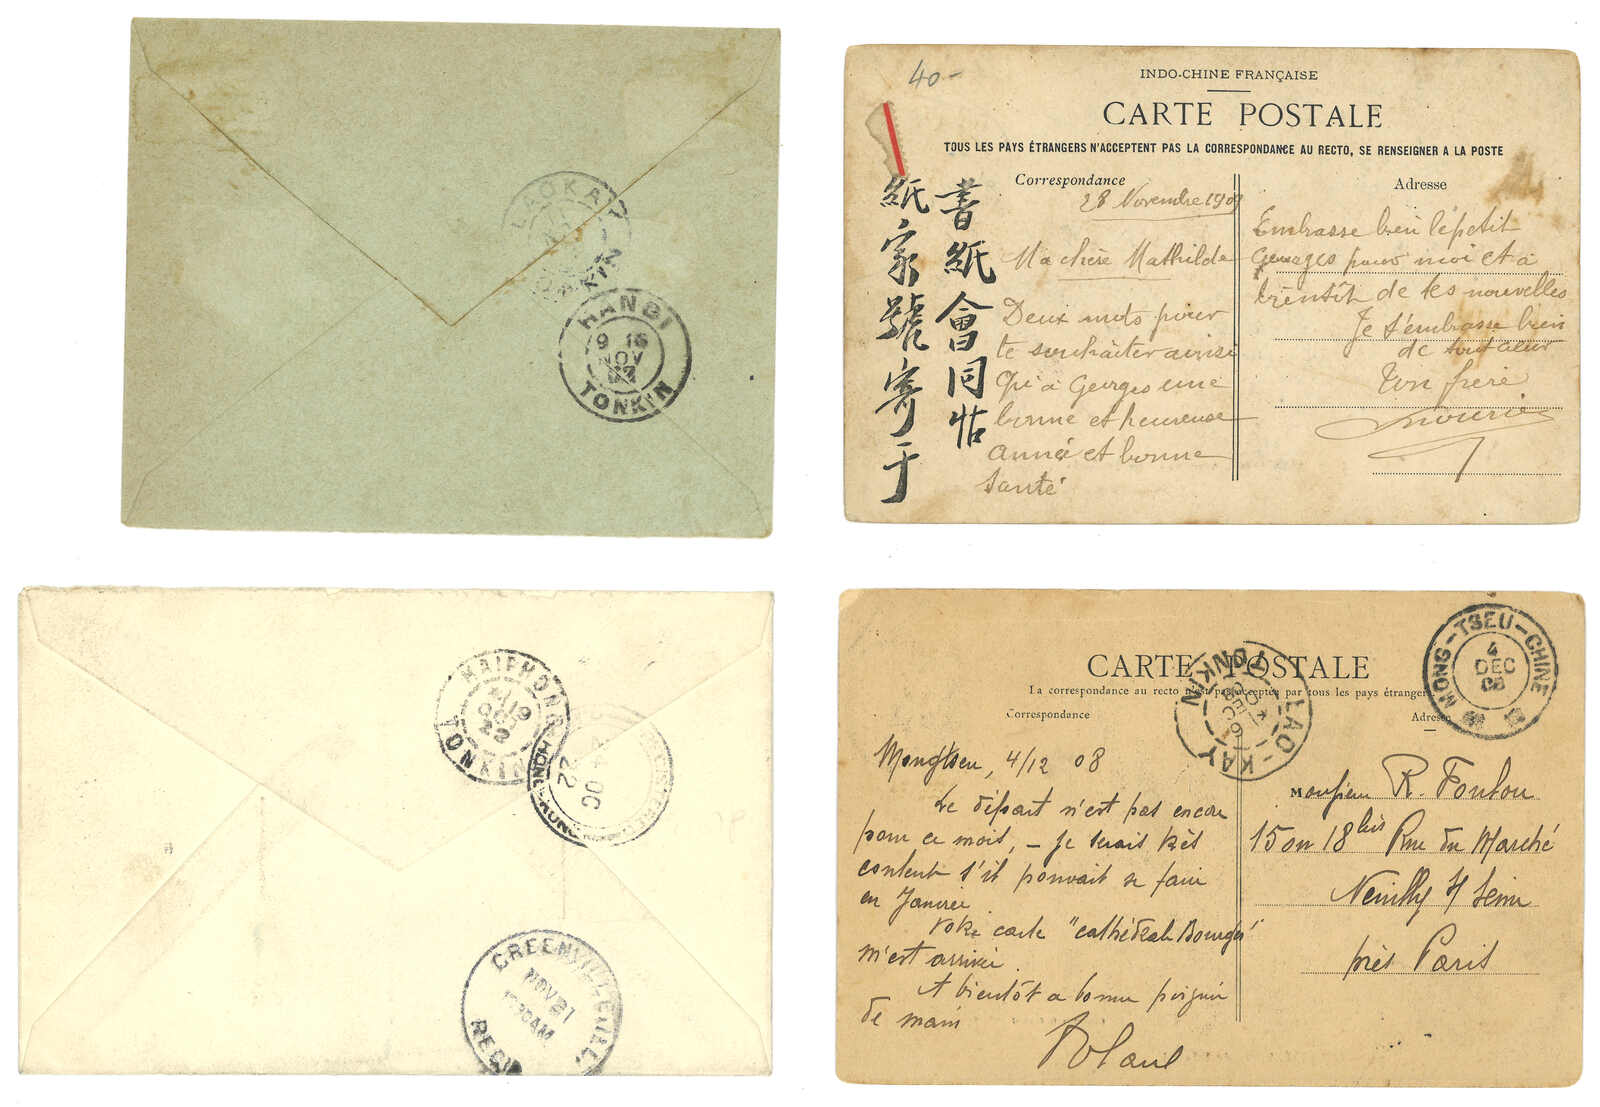 LAOKAY
TONKIN
HANOI
9 16
NOV
TONKIN
40-
INDO-CHINE FRANÇAISE
CARTE POSTALE
TOUS LES PAYS ÉTRANGERS N'ACCEPTENT PAS LA CORRESPONDANCE AU RECTO, SE RENSEIGNER A LA POSTE
Correspondance
書紙會同帖
紙家號寄于
28 Novembre 1909
Ma chère Mathilde
Deux mots pour
te souhaiter ainsi
qu'à Georges une
bonne et heureuse
année et bonne
santé
Adresse
Embrasse bien le petit
Georges pour moi et à
bientôt de tes nouvelles
Je t'embrasse bien
de tout cœur
Ton frère
HAIPHONG
19
OCT
22
TONKIN
REGISTERED
24 OC
22
HONG KONG
GREENVILLE
NOV 21
AM
REC'D
CARTE POSTALE
La correspondance au recto n'est pas acceptée par tous les pays étrangers
Correspondance
Adresse
MONG-TSEU-CHINE
4
DEC
08
LAO-KAY
TONKIN
6
DEC
08
Mongtseu, 4/12 08
Le départ n'est pas encore
pour ce mois, - je serais très
content s'il pouvait se faire
en Janvier
Votre carte "cathédrale Bourges"
m'est arrivée
A bientôt a bonne poignée
de main
Roland
Monsieur R. Foulou
15 ou 18 bis Rue du Marché
Neuilly s/ Seine
près Paris